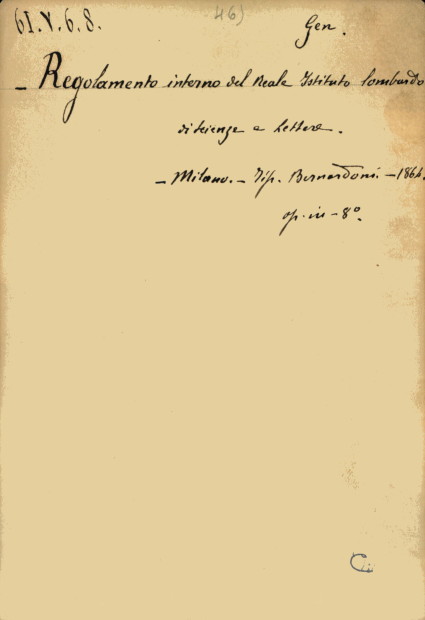 61.V.6.8. 46) Gen.
- Regolamento interno del Reale Istituto lombardo
di scienze e lettere.
- Milano. - Tip. Bernardoni. - 1864.
op. in - 8°.